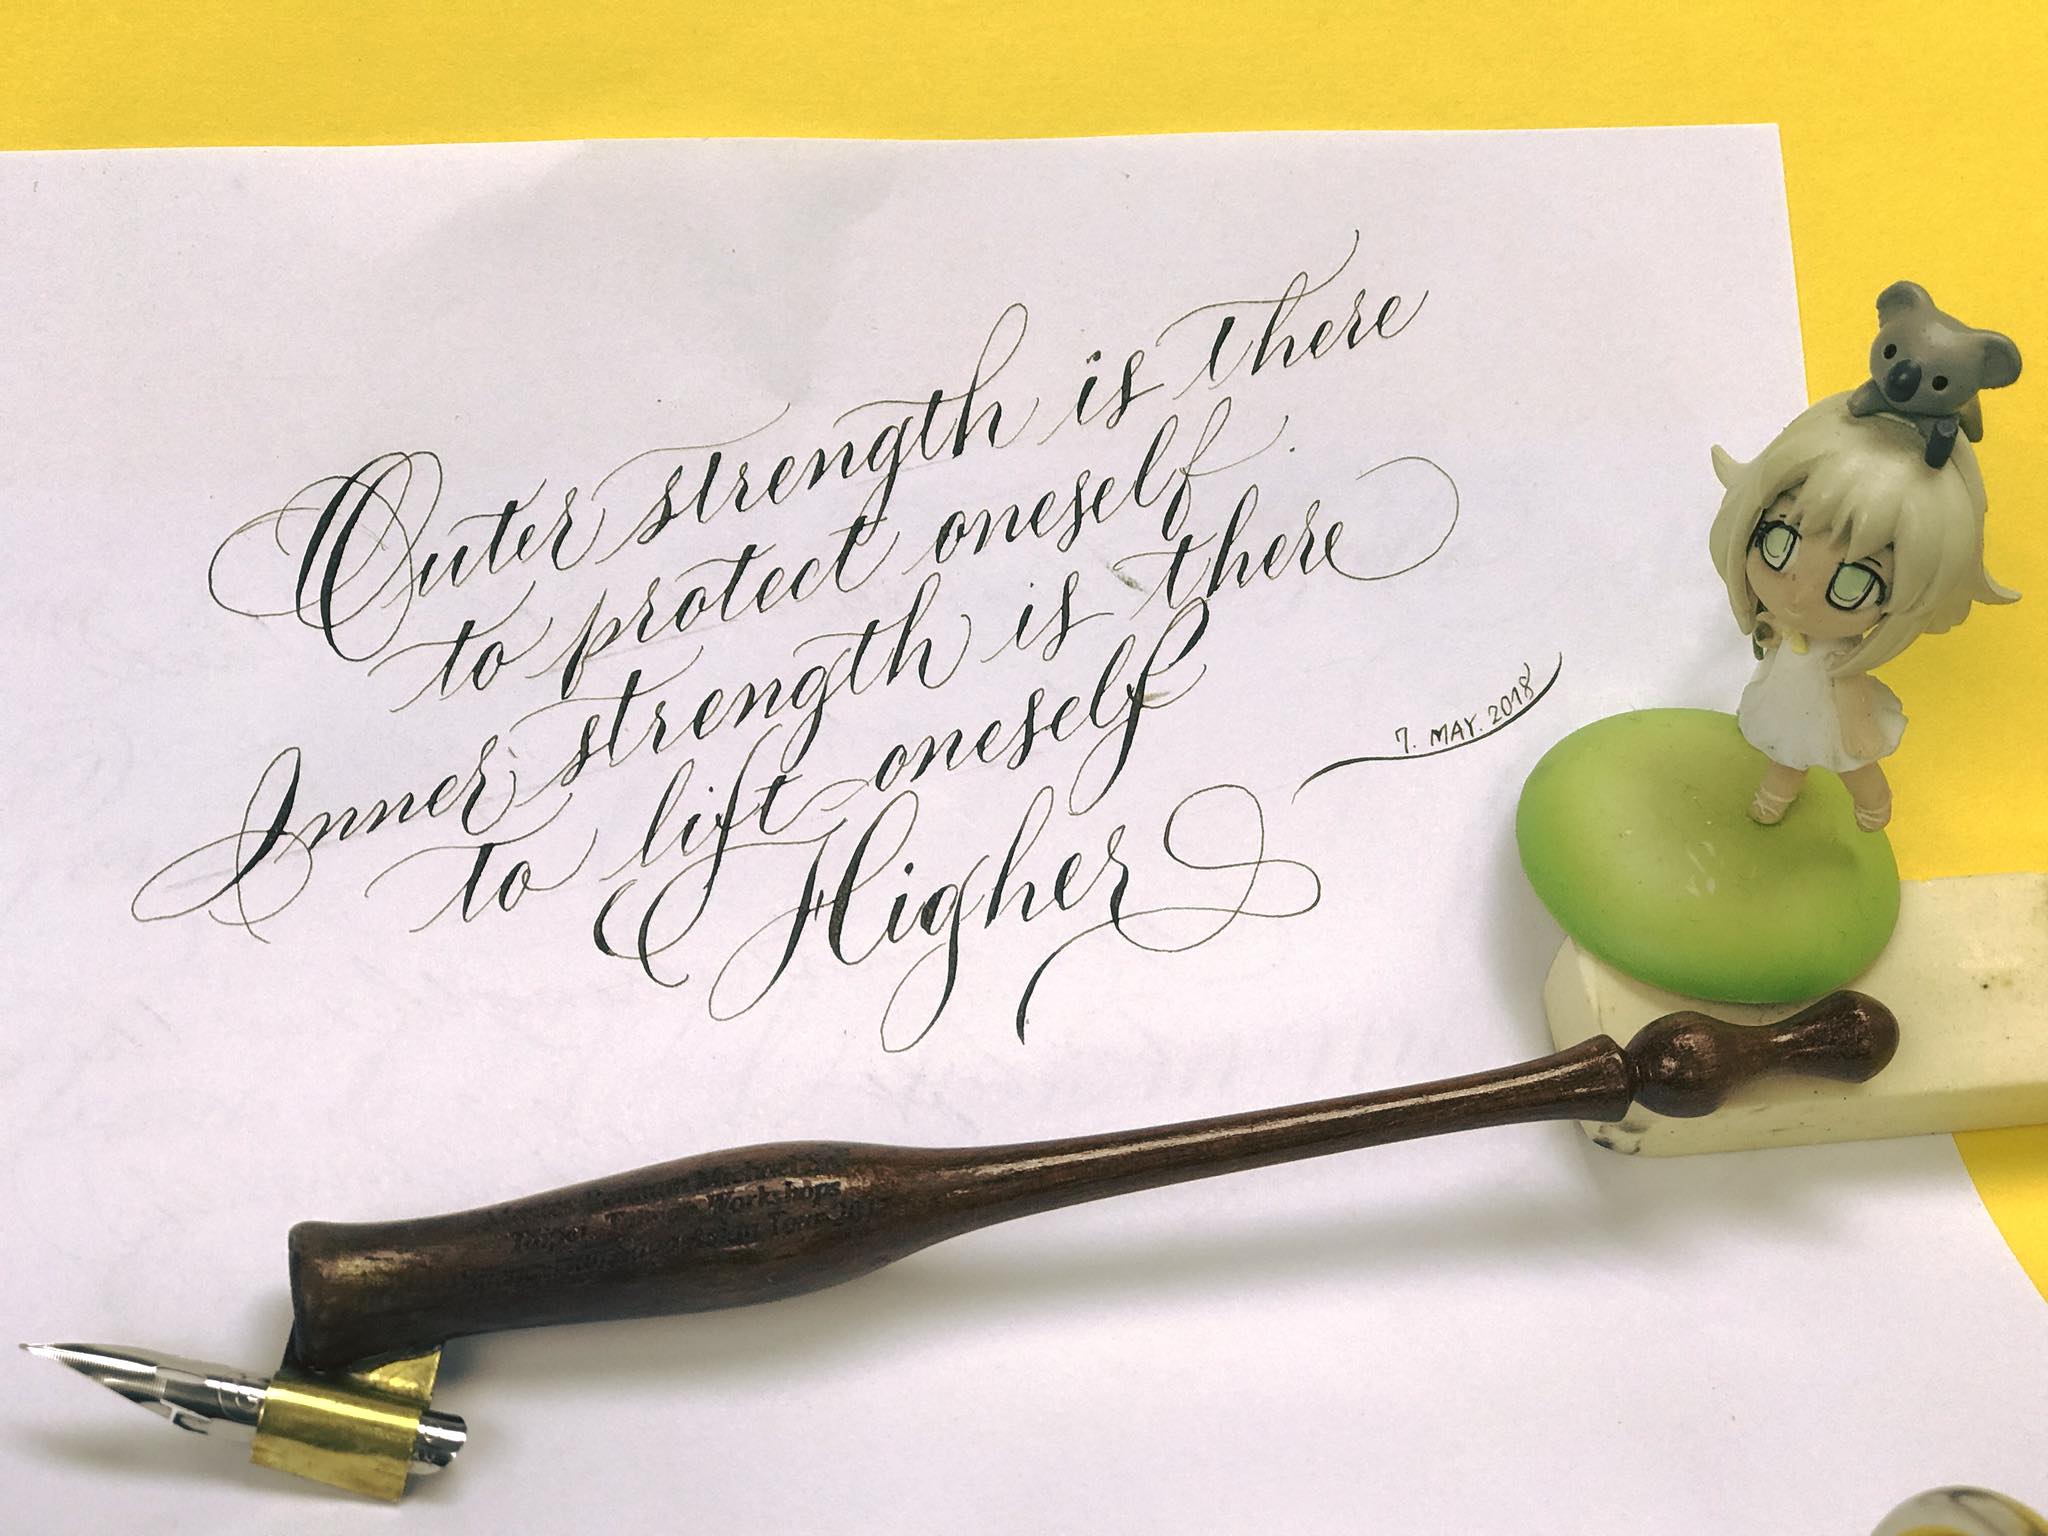 Outer strength is there
to protect oneself
Inner strength is there
to lift oneself
Higher
7. MAY. 2018
Workshops